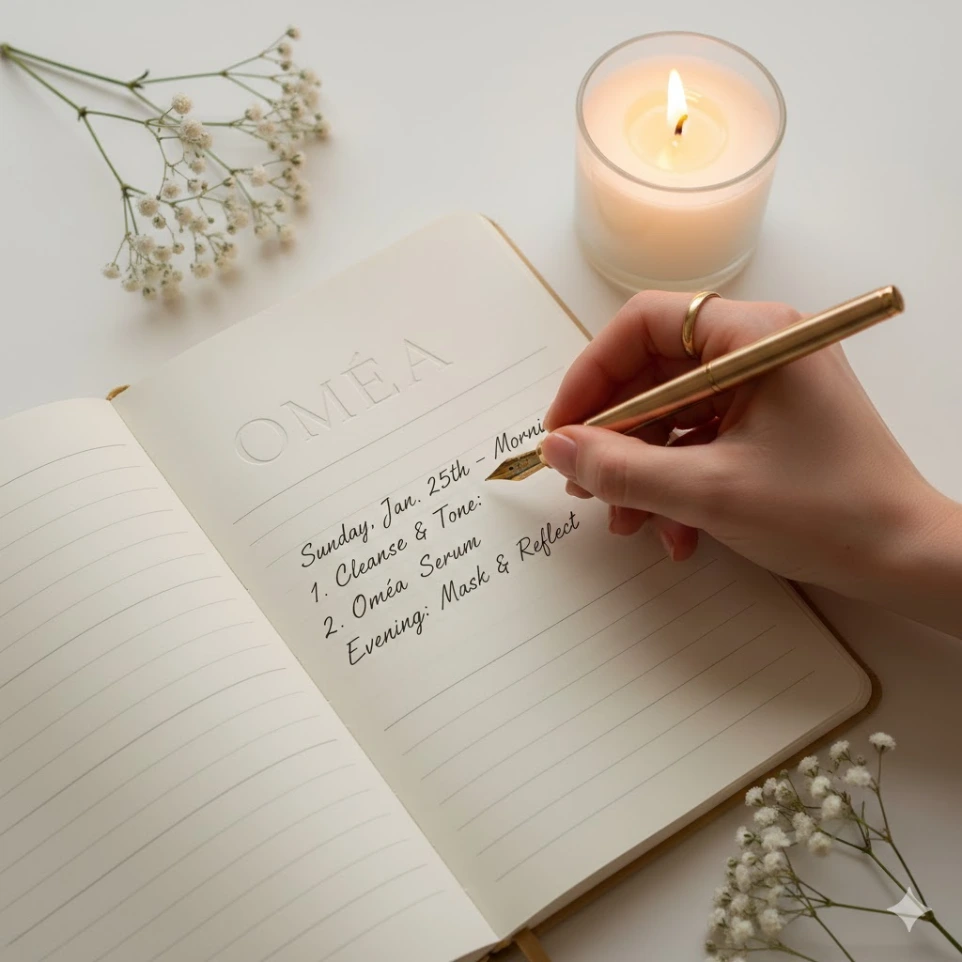 OMÉA
Sunday, Jan. 25th - Morni
1. Cleanse & Tone:
2. Oméa Serum
Evening: Mask & Reflect